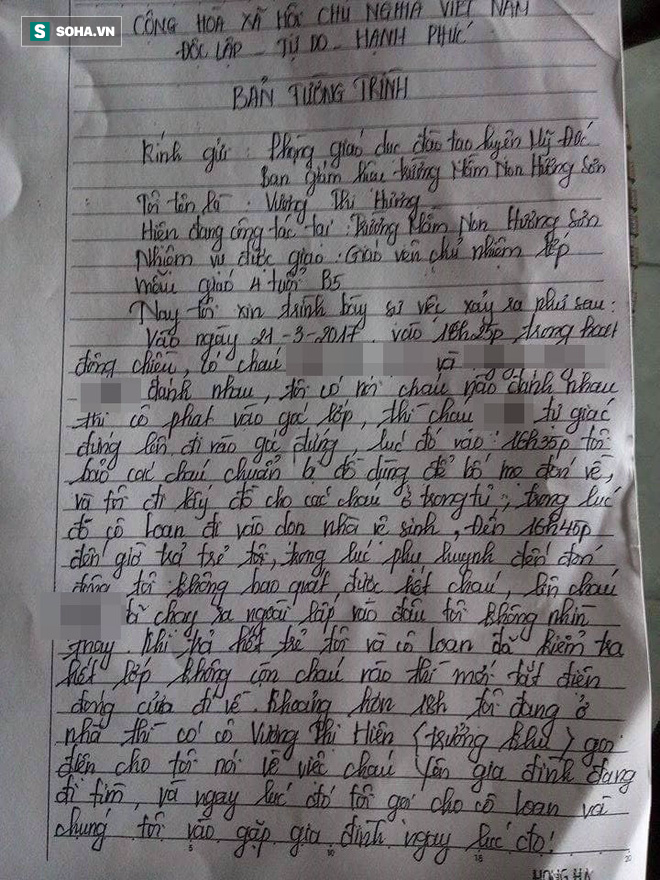 SOHA.VN
CỘNG HÒA XÃ HỘI CHỦ NGHĨA VIỆT NAM
ĐỘC LẬP - TỰ DO - HẠNH PHÚC
BẢN TƯỜNG TRÌNH
Kính gửi : Phòng giáo dục đào tạo huyện Mỹ Đức
Ban giám hiệu trường Mầm Non Hương Sơn
Tôi tên là : Vương Thị Hương
Hiện đang công tác tại : Trường Mầm Non Hương Sơn
Nhiệm vụ được giao : Giáo viên chủ nhiệm lớp
mẫu giáo 4 tuổi B5
Nay tôi xin trình bày sự việc xảy ra như sau :
Vào ngày 21-3-2017 vào 16h25p trong hoạt
động chiều, có cháu và
đánh nhau, tôi có nói cháu nào đánh nhau
thì cô phạt vào góc lớp, thì cháu tự giác
đứng lên đi vào góc đứng, lúc đó vào : 16h35p tôi
bảo các cháu chuẩn bị đồ dùng để bố mẹ đón về,
và tôi đi lấy đồ cho các cháu ở trong tủ, trong lúc
đó cô Loan đi vào dọn nhà vệ sinh, Đến 16h45p
đến giờ trả trẻ tôi, trong lúc phụ huynh đến đón
đông tôi không bao quát được hết cháu, lên cháu
đã chạy ra ngoài lấp vào đâu tôi không nhìn
thấy. Khi trả hết trẻ tôi và cô Loan đã kiểm tra
hết lớp không còn cháu nào thì mới tắt điện
đóng cửa đi về. Khoảng hơn 18h tôi đang ở
nhà thì có cô Vương Thị Hiên (trưởng khu) gọi
điện cho tôi nói về việc cháu Yến gia đình đang
đi tìm, và ngay lúc đó tôi gọi cho cô Loan và
chúng tôi vào gặp gia đình ngay lúc đó!
5 10 15 20
HONG HA